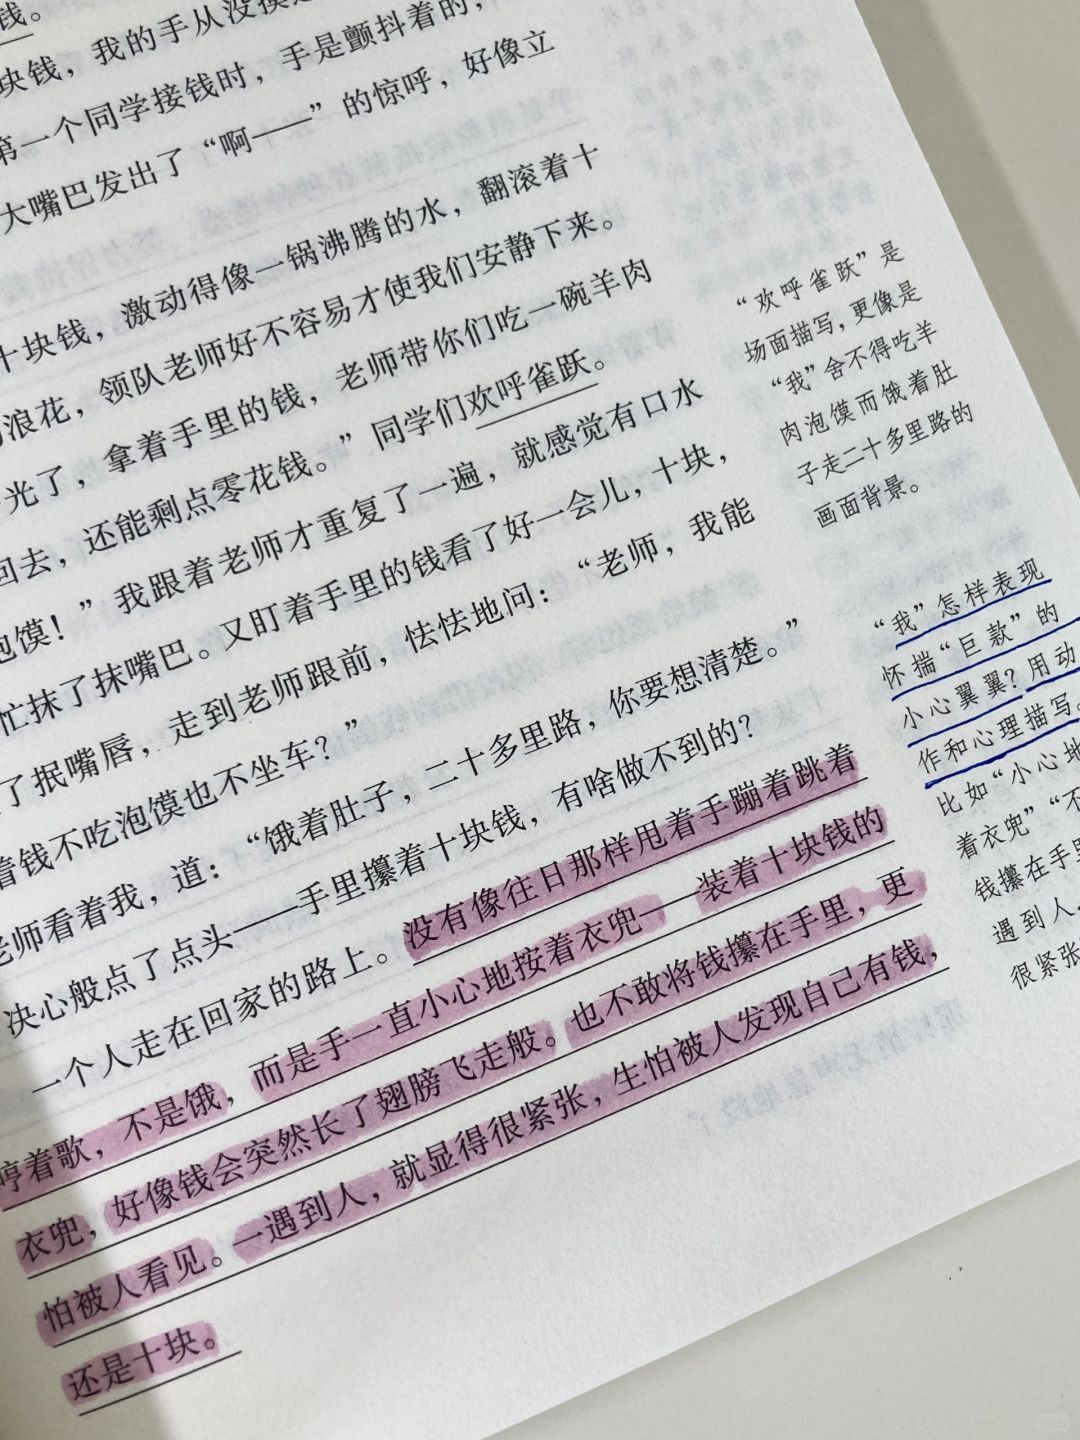 钱。
块钱，我的手从没摸
第一个同学接钱时，手是颤抖着的，
大嘴巴发出了“啊——”的惊呼，好像立
十块钱，激动得像一锅沸腾的水，翻滚着十
浪花，领队老师好不容易才使我们安静下来。
光了，拿着手里的钱，老师带你们吃一碗羊肉
回去，还能剩点零花钱。”同学们欢呼雀跃。
泡馍！”我跟着老师才重复了一遍，就感觉有口水
忙抹了抹嘴巴。又盯着手里的钱看了好一会儿，十块，
了抿嘴唇，走到老师跟前，怯怯地问：“老师，我能
着钱不吃泡馍也不坐车？”
老师看着我，道：“饿着肚子，二十多里路，你要想清楚。”
决心般点了点头——手里攥着十块钱，有啥做不到的？
一个人走在回家的路上。没有像往日那样甩着手蹦着跳着
哼着歌，不是饿，而是手一直小心地按着衣兜——装着十块钱的
衣兜，好像钱会突然长了翅膀飞走般。也不敢将钱攥在手里，更
怕被人看见。一遇到人，就显得很紧张，生怕被人发现自己有钱，
还是十块。
“欢呼雀跃”是
场面描写，更像是
“我”舍不得吃羊
肉泡馍而饿着肚
子走二十多里路的
画面背景。
“我”怎样表现
怀揣“巨款”的
小心翼翼？用动
作和心理描写。
比如“小心地
着衣兜”“不
钱攥在手里
遇到人，
很紧张